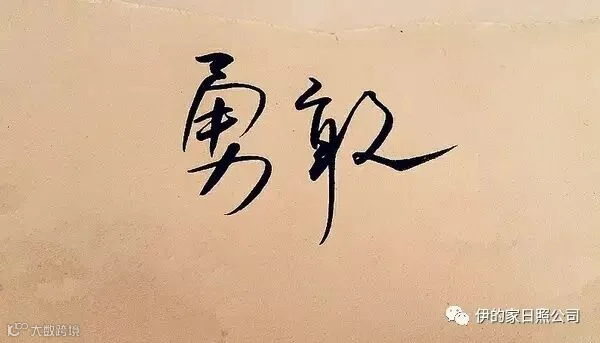 勇敢
伊的家日照公司
大数跨境